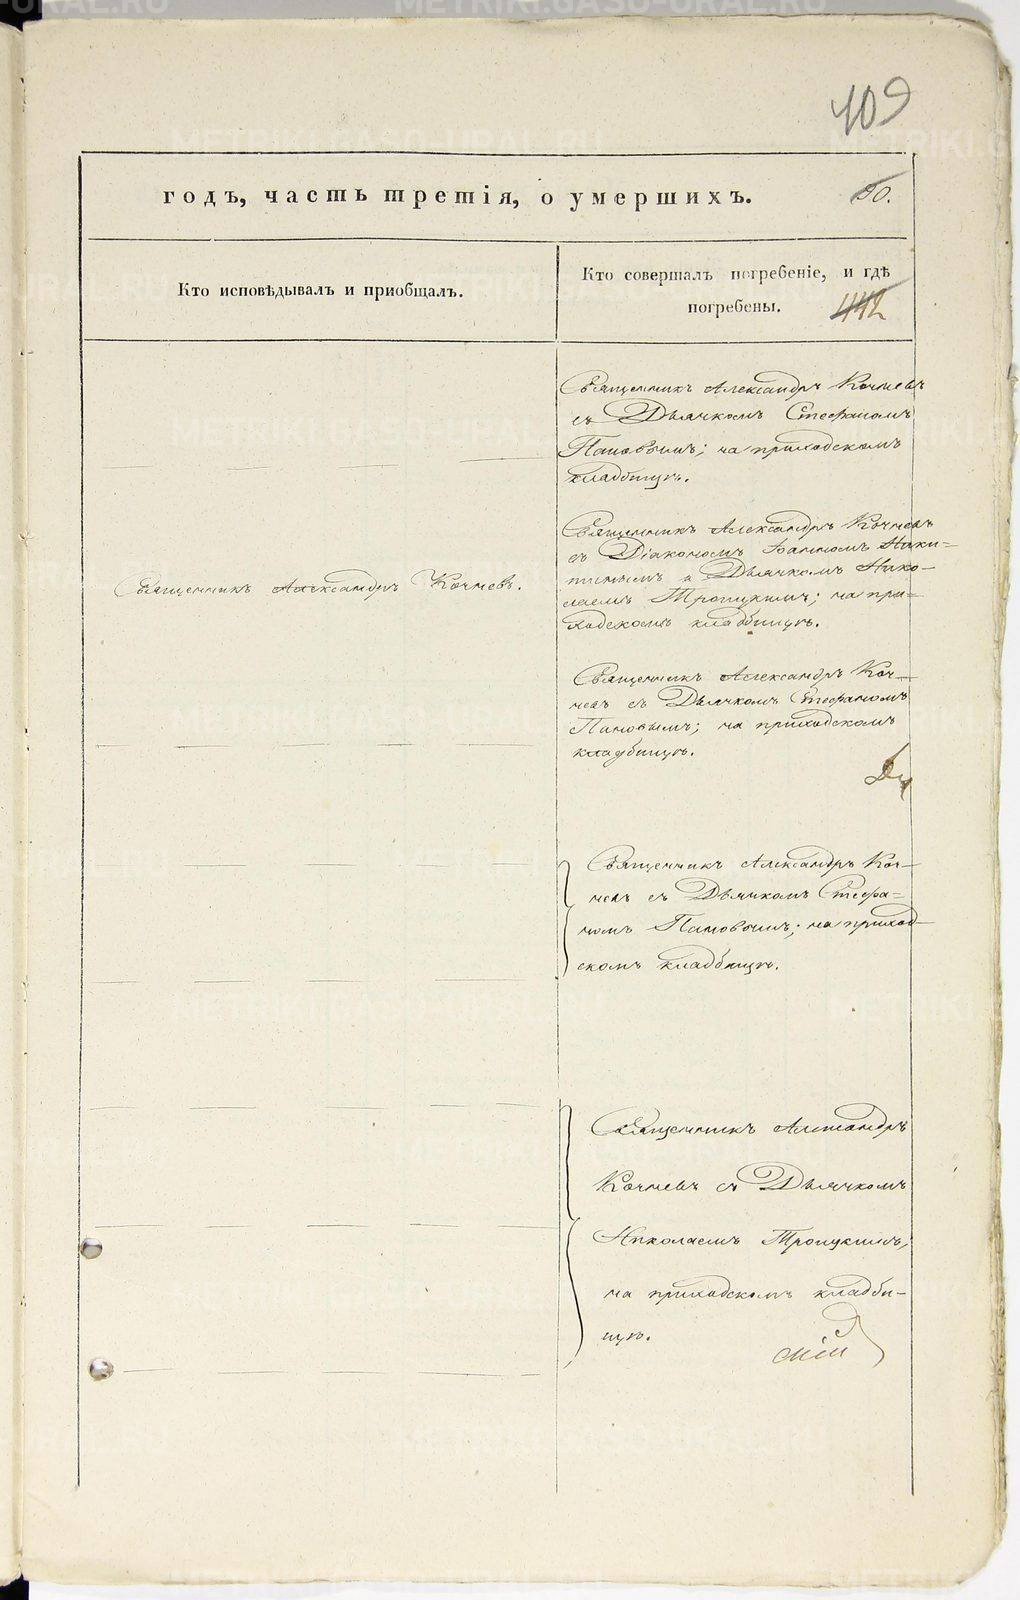 409
годъ, часть третія, о умершихъ.
90.
Кто исповѣдывалъ и пріобщалъ.
Кто совершалъ погребеніе, и гдѣ
погребены.
442
Священникъ Александръ Кочневъ
съ Дьячкомъ Стефаномъ
Пановымъ; на приходскомъ
кладбищѣ.
Священникъ Александръ Кочневъ
съ Діакономъ Іоанномъ Ники-
тинымъ и Дьячкомъ Нико-
лаемъ Троицкимъ; на при-
ходскомъ кладбищѣ.
Священникъ Александръ Кочневъ.
Священникъ Александръ Коч-
невъ съ Дьячкомъ Стефаномъ
Пановымъ; на приходскомъ
кладбищѣ.
Священникъ Александръ Коч-
невъ съ Дьячкомъ Стефа-
номъ Пановымъ; на приход-
скомъ кладбищѣ.
Священникъ Александръ
Кочневъ съ Дьячкомъ
Николаемъ Троицкимъ;
на приходскомъ кладби-
щѣ.
METRIKI.GASO-URAL.RU